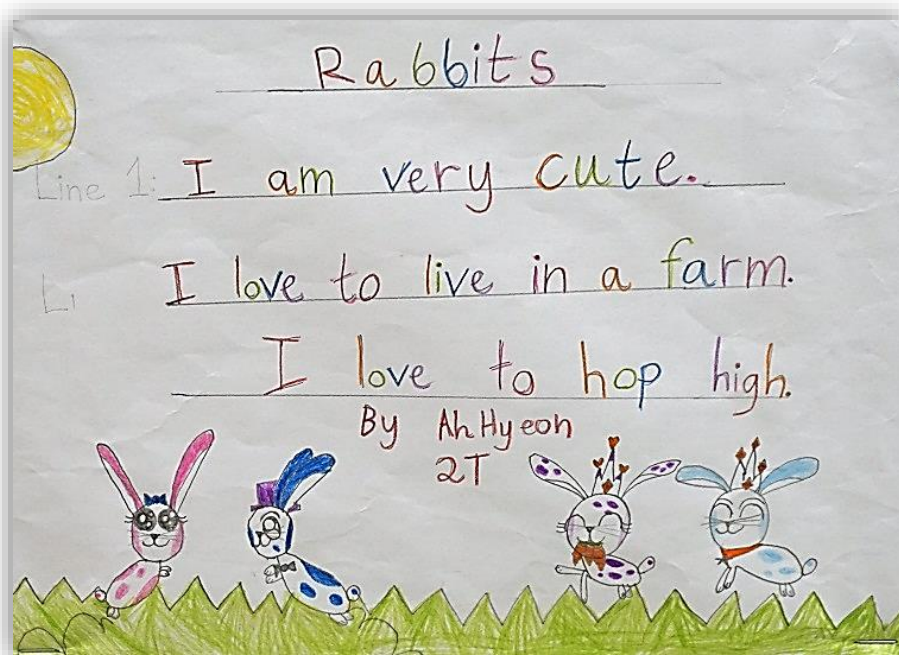 Rabbits
Line 1: I am very cute.
Li I love to live in a farm.
I love to hop high.
By AhHyeon
2T